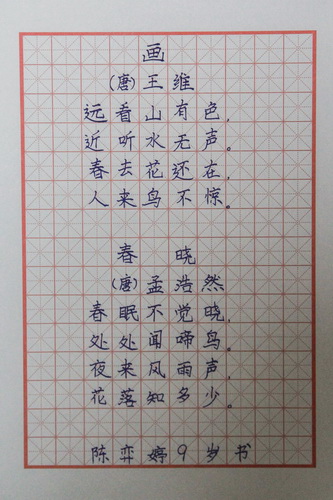 画
(唐)王维
远看山有色,
近听水无声。
春去花还在,
人来鸟不惊。
春晓
(唐)孟浩然
春眠不觉晓,
处处闻啼鸟。
夜来风雨声,
花落知多少。
陈弈婷9岁书